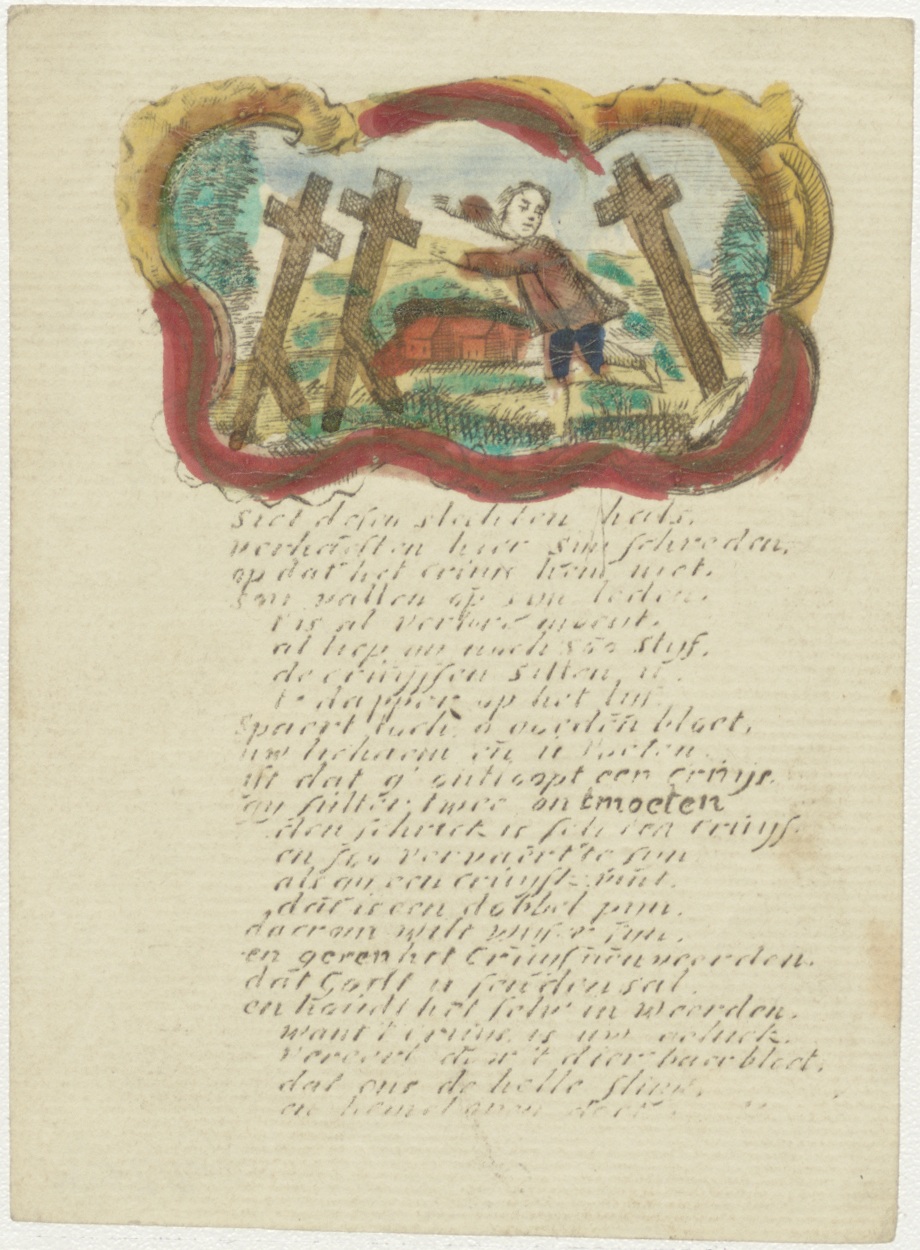 siet desen slechten hals.
verhaesten hier syn schreden,
op dat het cruus hem niet.
sou vallen op syn leden.
t'is al verlore moeut.
al liep gy noch soo styf.
de cruyssen sitten u.
te dapper op het lyf.
Spaert toch o goeden bloet,
uw lichaem en u voeten
ist dat g' ontloopt een cruys.
gy sulter twee ontmoeten
den schrick is selv een cruys.
en soo vervaert te syn
als gy een cruys
dat is een dobbel pyn.
daerom wilt wyser syn.
en geren het Cruys veerden.
dat Godt u senden sal.
en houdt het selv' in weerden.
want 't cruus is uw geluck.
't dierbaer bloet,
dat ons de helle sluyt.
en hemel open doet